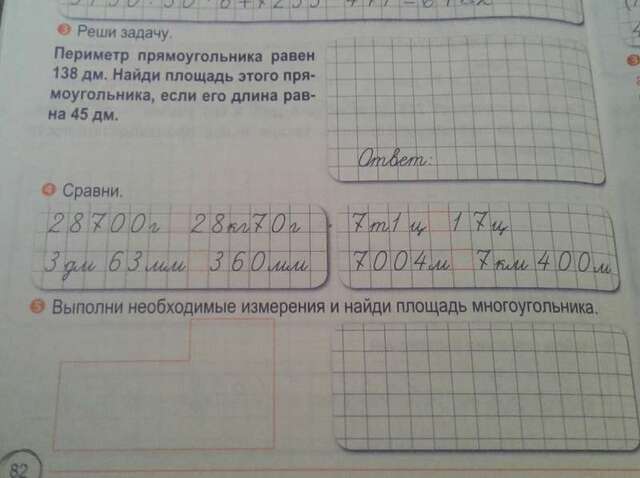 3 Реши задачу.
Периметр прямоугольника равен
138 дм. Найди площадь этого пря-
моугольника, если его длина рав-
на 45 дм.
Ответ:
4 Сравни.
28700г 28кг70г
3дм 63мм 360мм
7т1ц 17ц
7004м 7км 400м
5 Выполни необходимые измерения и найди площадь многоугольника.
82